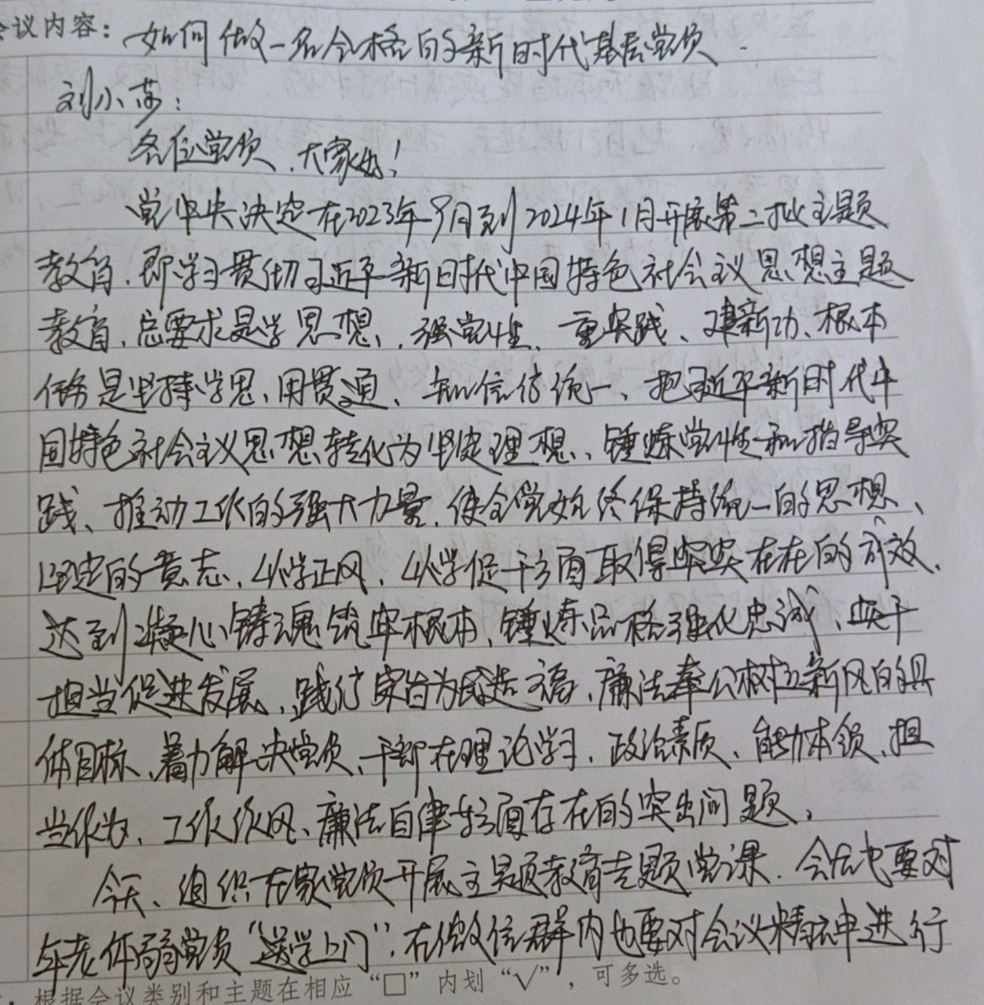 会议内容：如何做一名合格的新时代基层党员.
刘小莎：
各位党员、大家好！
党中央决定在2023年9月到2024年1月开展第二批主题
教育，即学习贯彻习近平新时代中国特色社会主义思想主题
教育，总要求是学思想、强党性、重实践、建新功、根本
任务是坚持学思、用贯通、知信行统一、把习近平新时代中
国特色社会主义思想转化为坚定理想、锤炼党性和指导实
践、推动工作的强大力量，使全党始终保持统一的思想、
坚定的意志，以学正风，以学促干方面取得实实在在的成效，
达到凝心铸魂筑牢根本，锤炼品格强化忠诚、实干
担当促进发展、践行宗旨为民造福，廉洁奉公树立新风的具
体目标、着力解决党员、干部在理论学习、政治素质、能力本领、担
当作为、工作作风、廉洁自律等方面存在的突出问题。
今天、组织在家党员开展主题教育专题党课、会后也要对
年老体弱党员“送学上门”，在微信群内也要对会议精神进行
根据会议类别和主题在相应“□”内划“√”，可多选。